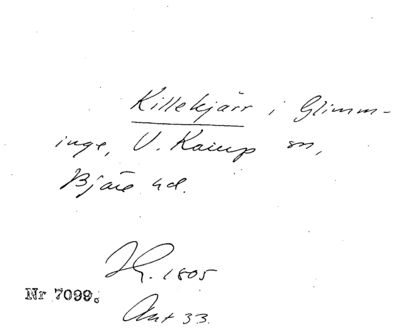 Killekjärr i Glimm-
inge, V. Karup sn,
Bjäre hd.
1805
Nr 7099.
Akt 33.